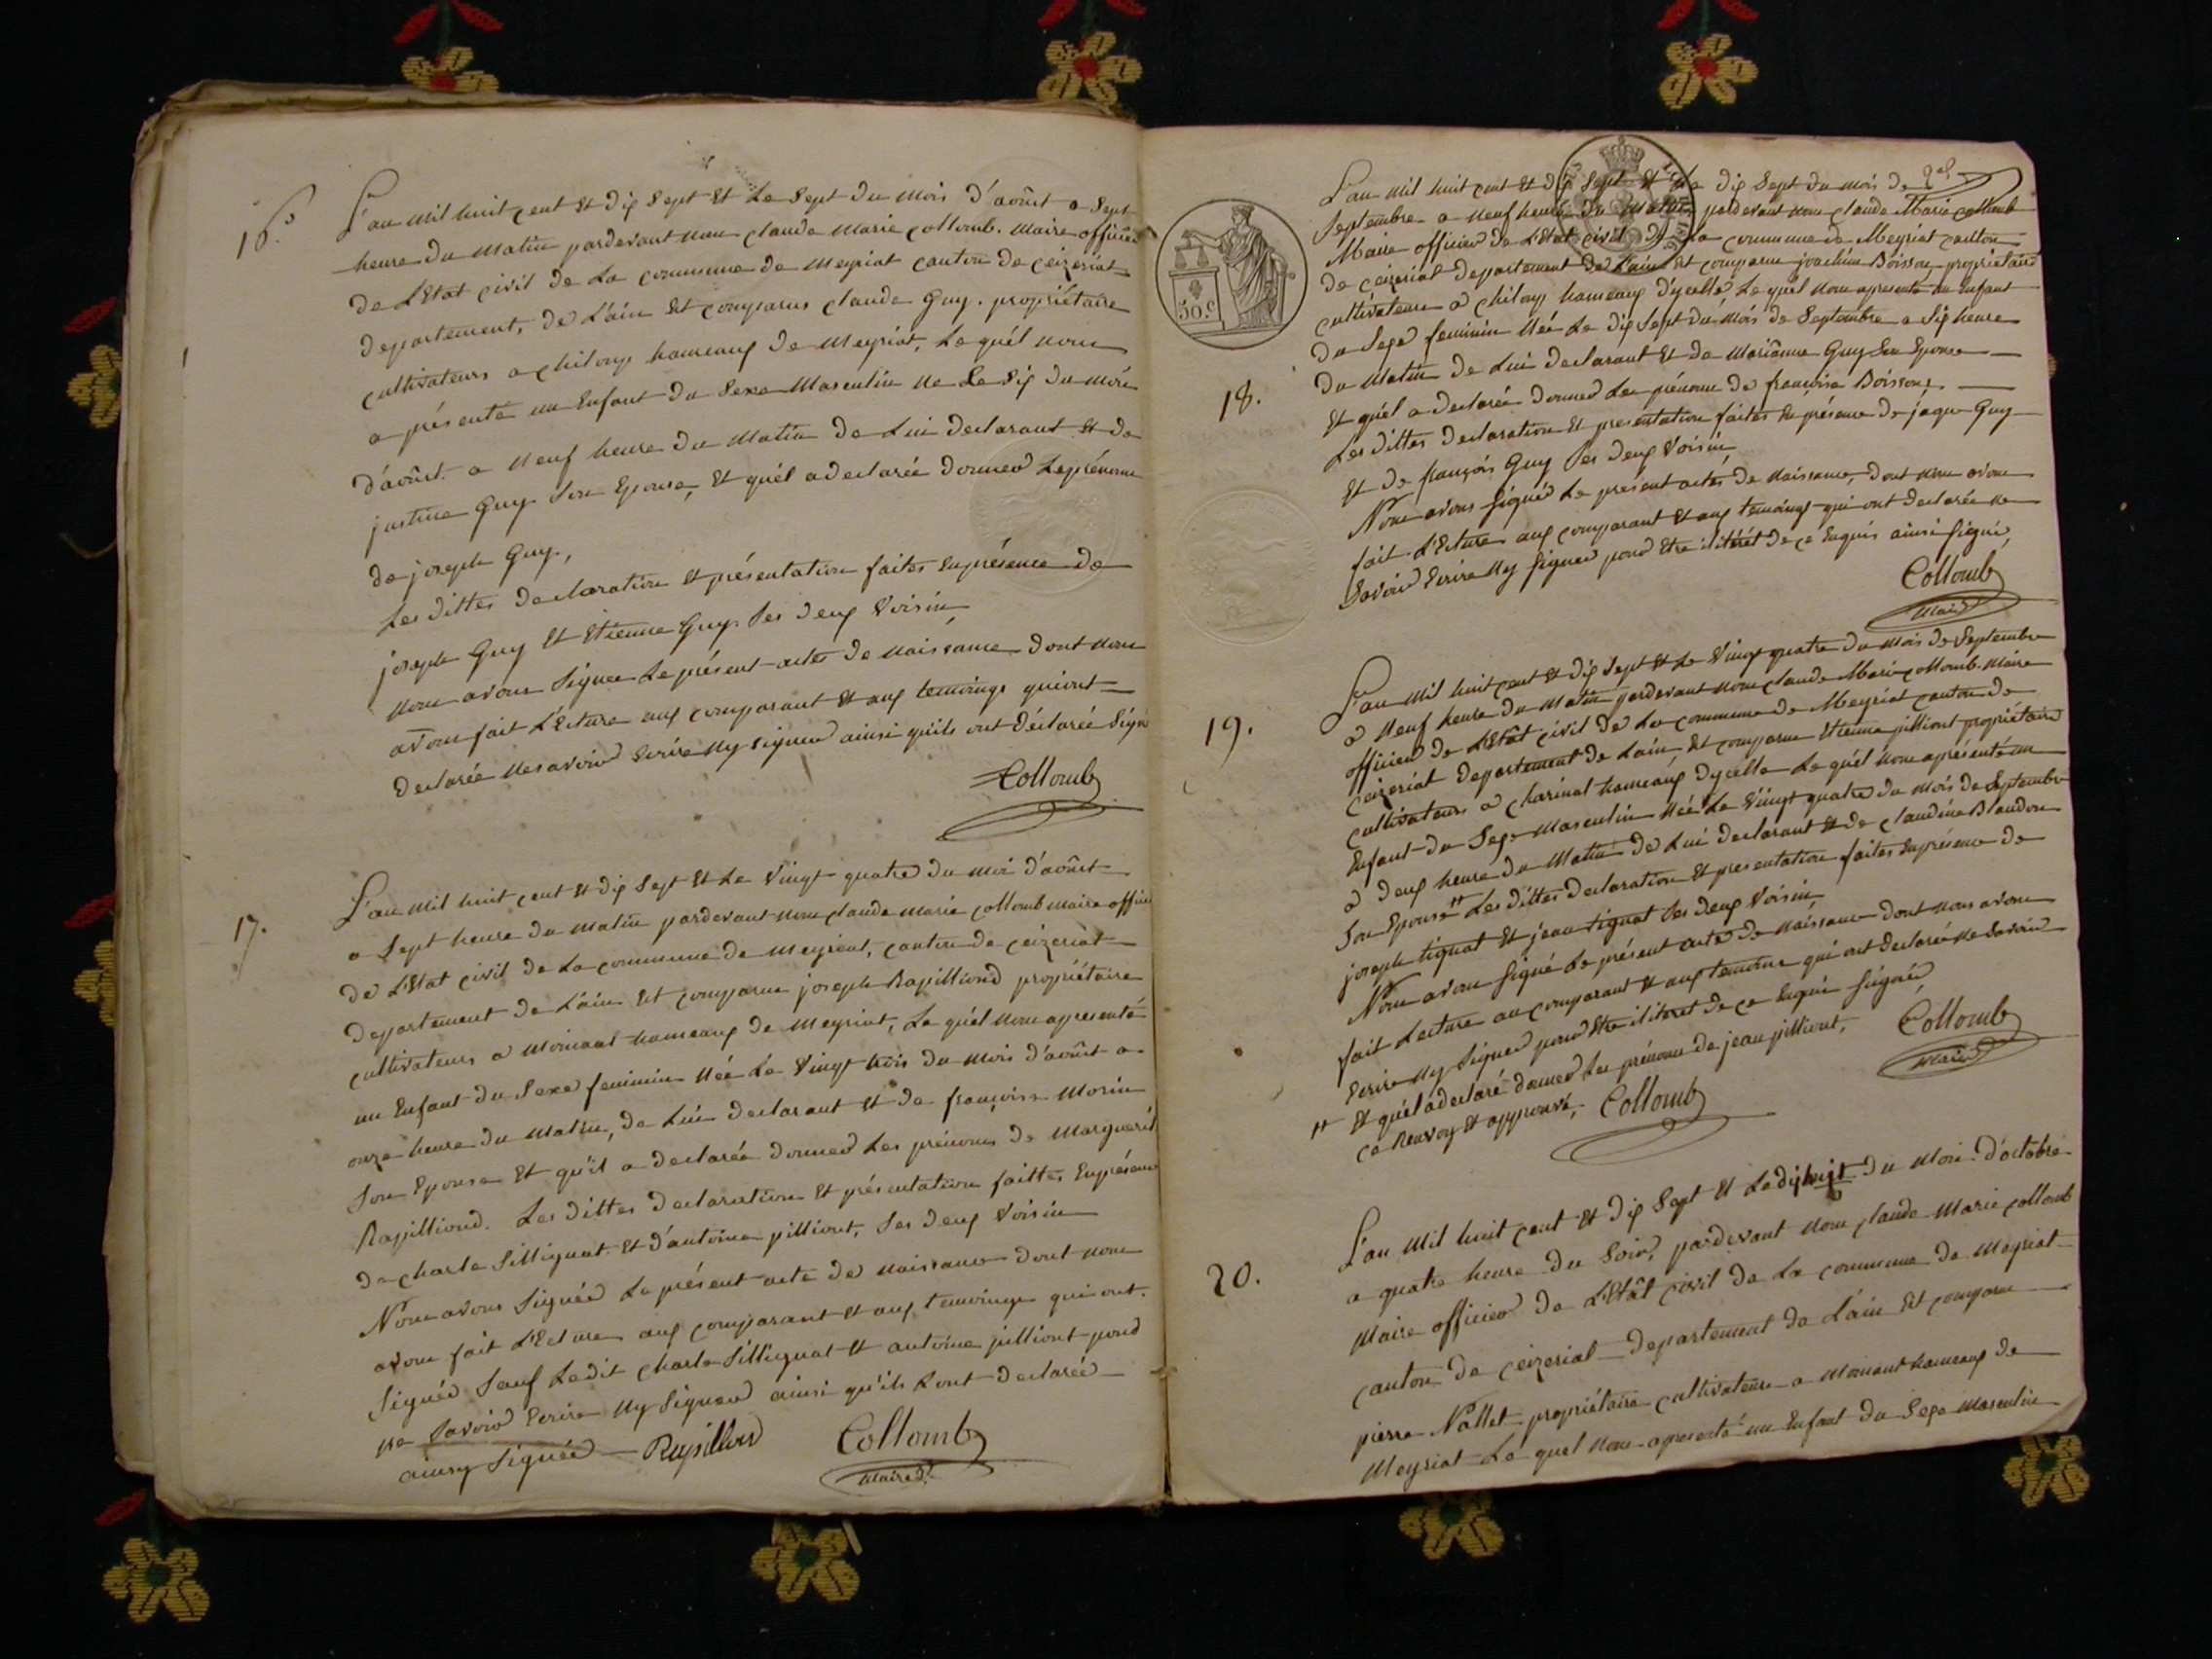 16.
L'an mil huit cent et dix sept et le sept du mois d'aoûst a sept
heure du matin pardevant nous claude marie collomb. maire officier
de l'Etat civil de la commune de meyriat canton de ceizeriat
departement, de L'ain Est comparus claude Guy. propriétaire
cultivateurs a chilouy hameaux de meyriat, Le quél nous
a présenté un Enfant du Sexe Masculin ne Le Six du mois
d'aoûst a neuf heure du matin de Lui declarant et de
justine Guy Son Epouse, Et quél a declarée donner Le prénom
de joseph Guy,
Les dittes declaration et présentation faites en présence de
joseph Guy Et Etienne Guy. Ses deux voisin,
nous avons Signee Le présent actes de naissance dont nous
avons fait L'Ecture aux comparant et aux temoings qui ont
declarée ne savoir Ecrire Ny signer ainsi quils ont déclarée Signé
Collomb
17.
L'an mil huit cent et dix Sept Et Le vingt quatre du moi d'aoûst
a Sept heure du matin pardevant nous claude marie collomb maire officier
de L'Etat civil de La commune de meyriat, canton de ceizeriat
departement de L'ain Est comparus joseph Rapilliond propriétaire
cultivateurs a Mornant hameaux de meyriat, Le quél nous apresenté
un Enfant du Sexe feminin Née Le vingt trois du mois d'aoûst a
onze heure du matin, de Lui declarant et de françoise Morin
Son Epouse Et qu'il a declarée donner Les prénoms de Marguerit
Rapilliond. Les dittes declaration Et présentation faittes En présence
de charle Sillignat Et d'antoine jilliont, Ses deux voisin
Nous avons Signée Le présent acte de naissance dont nous
avons fait L'Ecture aux comparant et aux temoings qui ont.
Signée Sauf Ledit charle Sillignat Et antoine jilliont pour
ne Savoir Ecrire Ny Signer ainsi qu'ils L'ont declarée
ainsy Signée — Rapilliond Collomb
maire
50.C
18.
L'an mil huit cent Et dix Sept Et Le dix Sept du mois de
Septembre a neuf heure du matin pardevant nous claude Marie collomb
Maire officier de L'Etat civil de La commune de Meyriat canton
de ceizeriat departement de L'ain Est comparus joachim Boisson propriétaire
cultivateurs a chilouy hameaux d'ycelle, Le quél nous apresenté un Enfant
du Sexe feminin Née Le dix Sept du mois de Septembre a Six heure
du Matin de Lui declarant Et de Marianne Guy Son Epouse
Et quél a declarée donner Les prénoms de françoise Boisson.
Les dittes declaration Et presentation faites En présence de jaque Guy
Et de françois Guy Ses deux voisin,
Nous avons Signée Le present actes de naissance, dont nous avons
fait. L'Ecture aux comparant Et aux temoings qui ont declarée ne
Savoir Ecrire Ny Signer pour Etre ilitéret de ce Enquis ainsi Signé,
Collomb
maire
19.
L'an mil huit cent et dix Sept Et Le vingt quatre du mois de Septembre
a Neuf heure du matin pardevant nous claude Marie collomb. maire
officier de L'Etât civil de La commune de Meyriat canton de
Ceizeriat departement de L'ain Est comparus Etienne jilliont propriétaire
cultivateurs a charinat hameaux Dycelle Le quél nous apresenté un
Enfant du Sexe Masculin Née Le vingt quatre du mois de Septembre
a deux heure du Matin de Lui declarant Et de claudine Blandon
Son Epouse # Les dittes declaration Et presentation faites En présence de
joseph tignat Et jean tignat Ses deux voisin,
Nous avons Signé Le présent acte de naissance dont nous avons
fait Lecture au comparant Et aux temoins qui ont declarée ne Savoir
Ecrire Ny Signer pour Etre ilitéret de ce Enquis Signée,
# Et quél a declaré donner Les prénoms de jean jilliont, Collomb
maire
ce Renvoy Et approuvé, Collomb
20.
L'an mil huit cent et dix Sept Et Le dixhuit du Mois d'octobre
a quatre heure du Soir, pardevant nous claude Marie collomb
Maire officier de L'Etât civil de La commune de Meyriat
canton de ceizeriat departement de L'ain Est comparus
pierre Nallet propriétaire cultivateurs a Mornant hameaux de
Meyriat Le quel nous apresenté un Enfant du Sexe Masculin